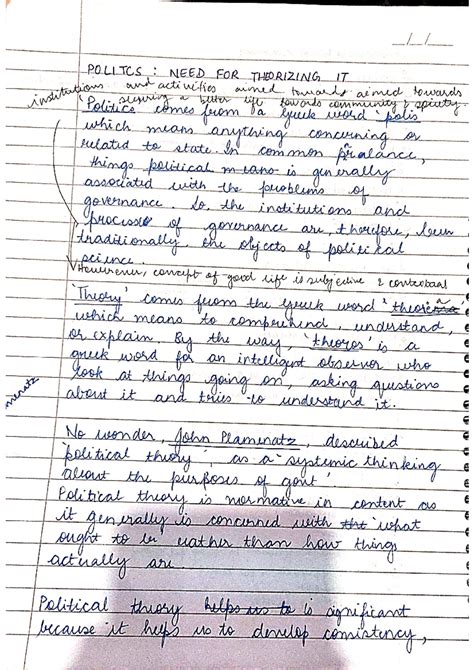 POLITCS : NEED FOR THEORIZING IT
institutions and activities aimed towards aimed towards
slewing a better life towards community & society.
Politics comes from a Greek word 'polis'
which means anything concerning or
related to state. In common paralance,
things political means is generally
associated with the problems of
governance. So, the institutions and
processe of governance are, therefore, been
traditionally the objects of political
science.
However, concept of good life is subjective & contextual
'Theory' comes from the Greek word 'theoria'
which means to comprehend, understand,
or explain. By the way, 'theoros' is a
greek word for an intelligent observer who
look at things going on, asking questions
about it and tries to understand it.
menatz
No wonder, John Plamenatz, described
'political theory', as a 'systemic thinking
about the purposes of govt'
Political theory is normative in content as
it generally is concerned with the 'what
ought to be' rather than how things
actually are.
Political theory helps us to is significant
because it helps us to develop consistency,